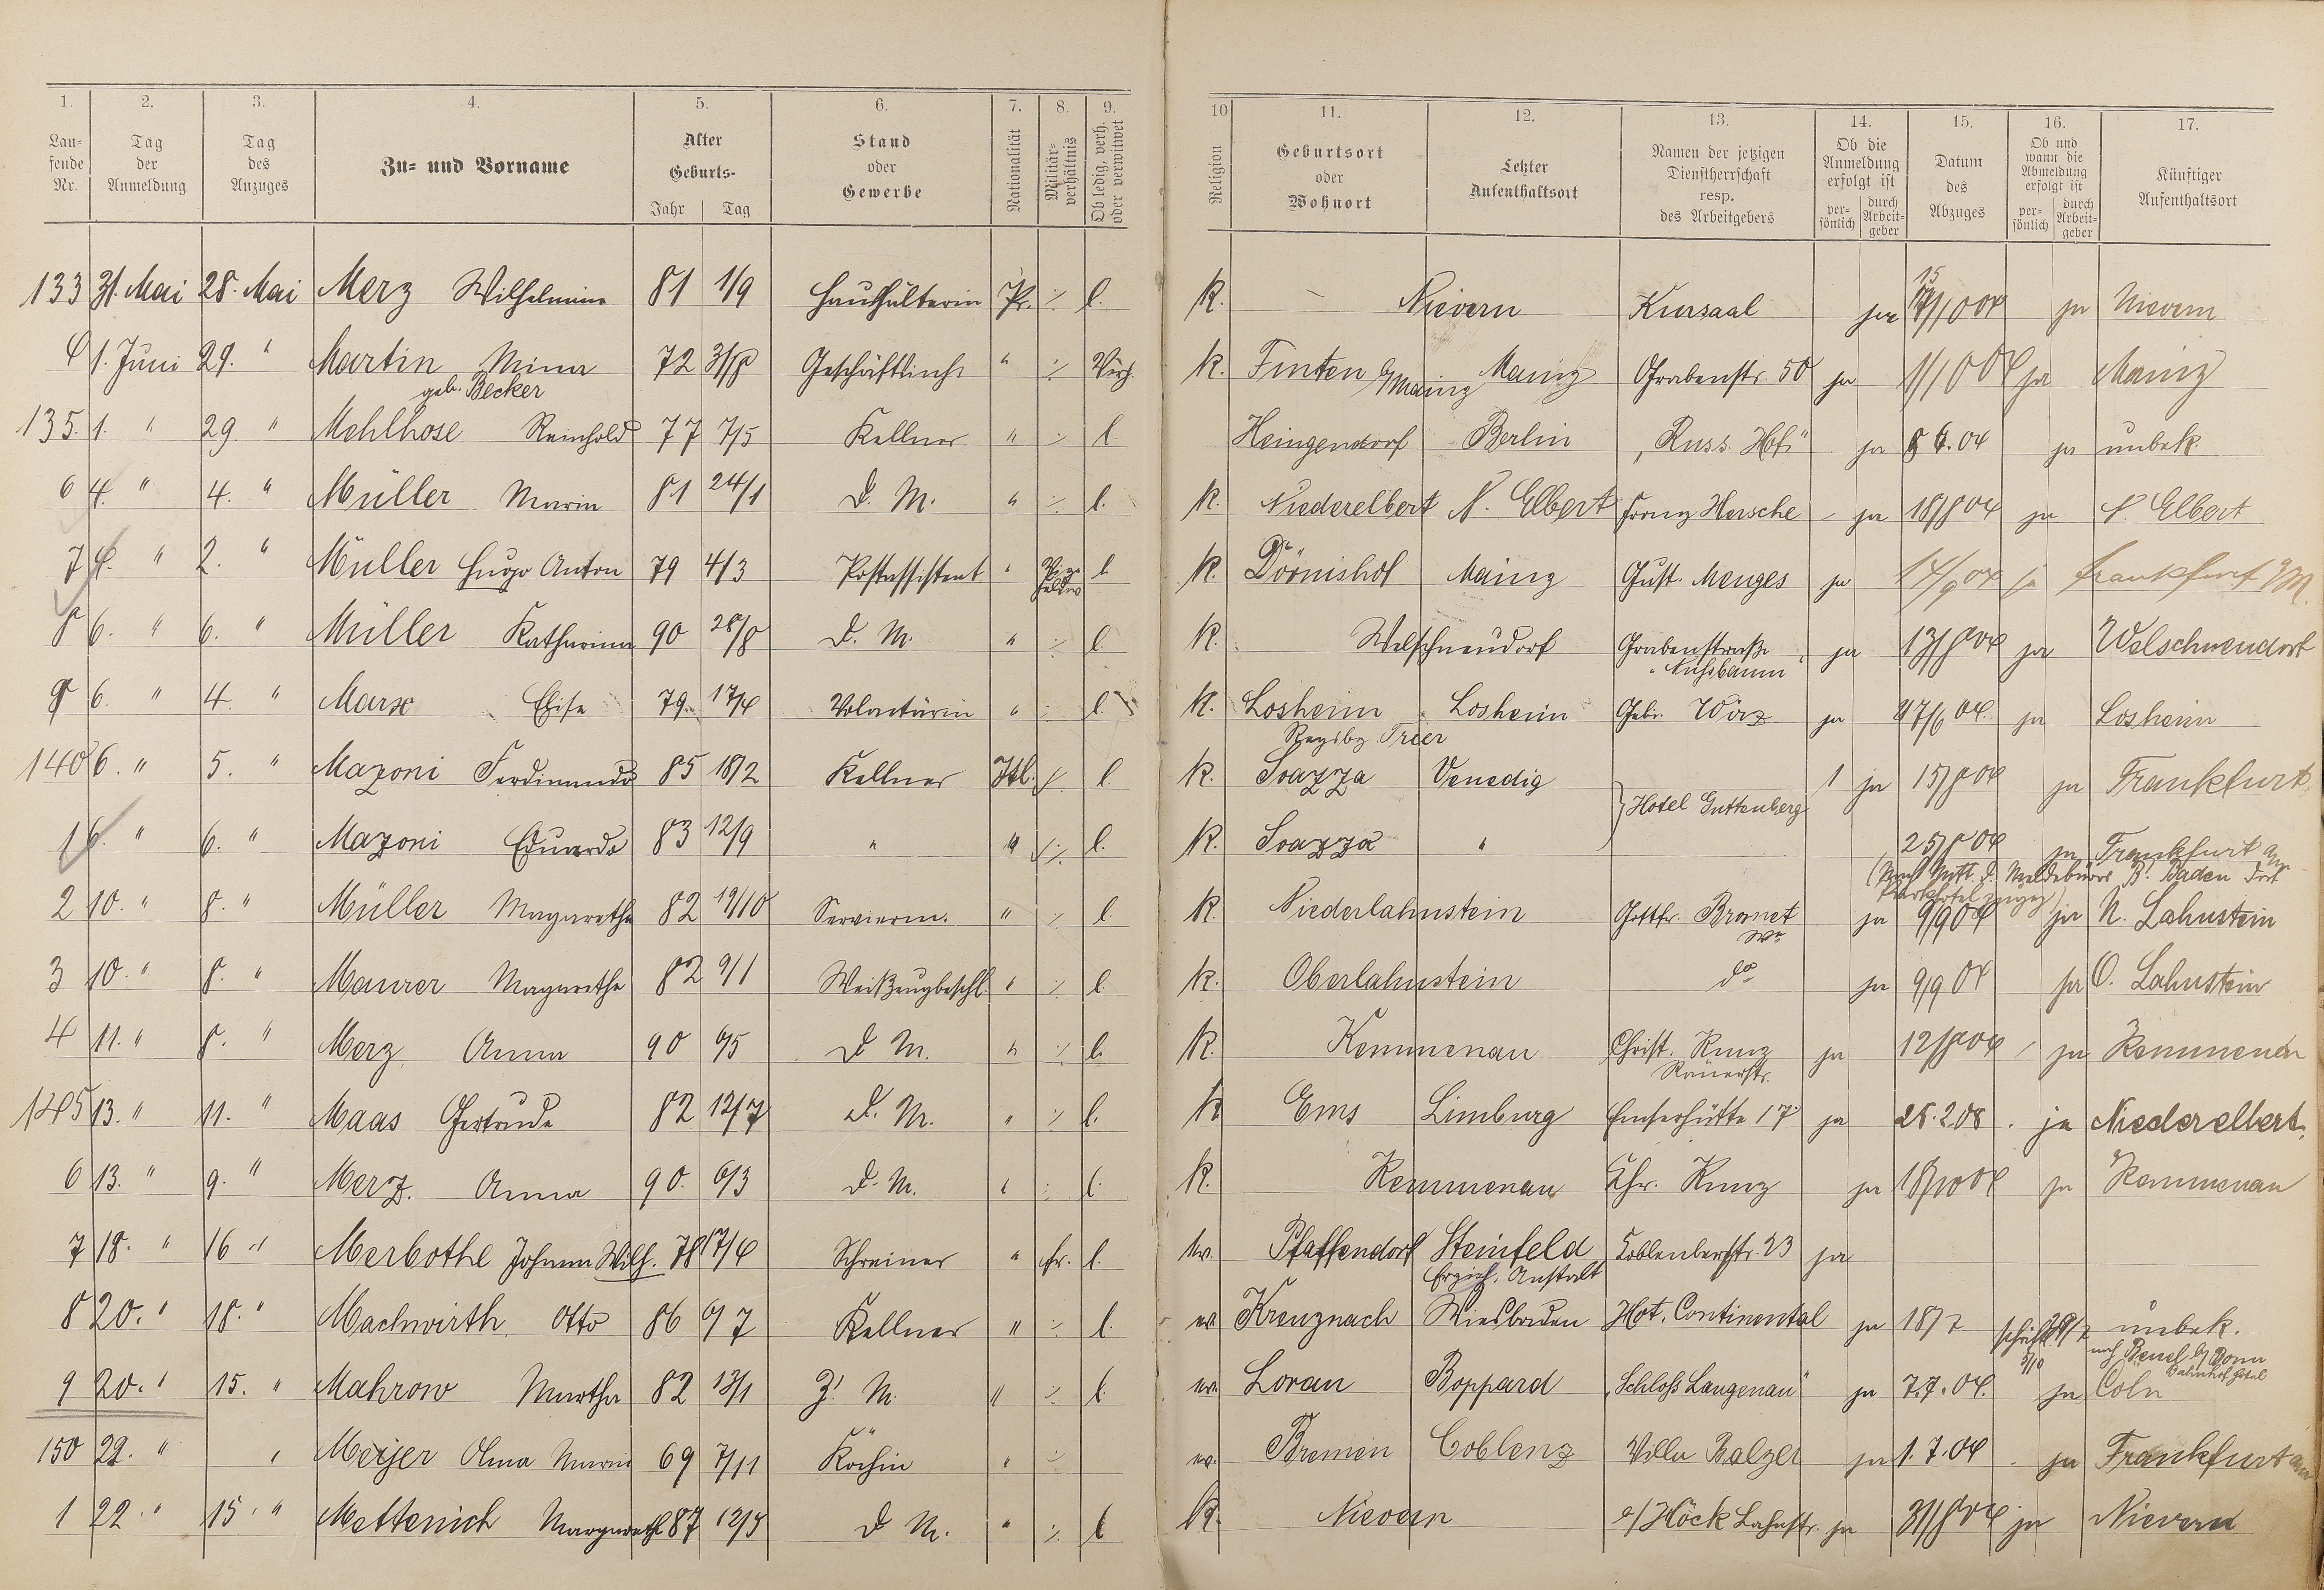 1. 2. 3. 4. 5. 6. 7. 8. 9. 10 11. 12. 13. 14. 15. 16. 17.
Lau-
fende
Nr.
Tag
der
Anmeldung
Tag
des
Anzuges
Zu- und Vorname
Alter
Geburts-
Jahr Tag
Stand
oder
Gewerbe
Nationalität
Militär-
verhältnis
Ob ledig, verh.
oder verwitwet
Religion
Geburtsort
oder
Wohnort
Letzter
Aufenthaltsort
Namen der jetzigen
Dienstherrschaft
resp.
des Arbeitgebers
Ob die
Anmeldung
erfolgt ist
per-
sönlich
durch
Arbeit-
geber
Datum
des
Abzuges
Ob und
wann die
Abmeldung
erfolgt ist
per-
sönlich
durch
Arbeit-
geber
Künftiger
Aufenthaltsort
133 31. Mai 28. Mai Merz Wilhelmine 81 1/9 Haushälterin Pr. ./. l. K. Nievern Kursaal ja 15/10 04 ja Nievern
4 1. Juni 29. " Martin Mina 72 31/8 " ./. K. Finten b/Mainz Mainz Grabenstr. 50 ja 1/10 04 ja Mainz
geb. Becker
135. 1. " 29. " Mehlhose Reinhold 77 7/5 Kellner " ./. l. Heingendorf Berlin "Russ. Hof" ja 8 6. 04 ja unbek.
6 4. " 4. " Müller Maria 81 24/1 D. M. " ./. l. K. Niederelbert N. Elbert Franz Hersche ja 18/8 04 ja N. Elbert
7 4. " 2. " Müller Hugo Anton 79 4/3 Postassistent " l. K. Dörnishof Mainz Gust. Menges ja 14/9 04 ja Frankfurt a/M.
8 6. " 6. " Müller Katharina 90 28/8 D. M. " ./. l. K. Welschneudorf Grabenstraße ja 13/8 04 ja Welschneudorf
"Nußbaum"
9 6. " 4. " Marx Elise 79. 17/4 Volontärin " ./. l. K. Losheim Losheim Gebr. Wörz ja 27/6 04. ja Losheim
Regsbz. Trier
140 6. " 5. " Mazoni Ferdinando 85 18/2 Kellner Itl. ./. l. K. Soazza Venedig } Hotel Guttenberg 1 ja 15/8 04 ja Frankfurt
1 6. " 6. " Mazoni Eduardo 83 12/9 " " ./. l. K. Soazza " 25/8 04 ja Frankfurt a/M
(Nach Mitt. d. Meldebüros B. Baden dort
Parkhotel zugez.)
2 10. " 8. " Müller Magarethe 82 19/10 Servierm. " ./. l. K. Niederlahnstein Gottfr. Bromet ja 9/9 04 ja N. Lahnstein
We
3 10. " 8. " Maurer Magarethe 82 9/1 Weißzeugbeschl. " ./. l. K. Oberlahnstein do ja 9/9 04 ja O. Lahnstein
4 11. " 8. " Merz Anna 90 6/5 D M. " ./. l. K. Kemmenau Christ. Kunz ja 12/8 04 ja Kemmenau
145 13. " 11. " Maas Gertrude 82 12/7 D. M. " ./. l. K Ems Limburg Emserhütte 17 ja 28. 2. 08. ja Niederelbert.
6 13. " 9. " Merz. Anna 90. 6/3 D. M. " ./. l. K. Kemmenau Chr. Kunz ja 18/10 04 ja Kemmenau
7 18. " 16 " Merbothe Johann Wilh. 78 17/4 Schreiner " fr. l. Pfaffendorf Steinfeld Coblenzerstr. 23 ja
Erzieh. Anstalt
8 20. " 18. " Machwirth. Otto 86 6/7 Kellner " ./. l. ev. Kreuznach Wiesbaden Hot. Continental ja 18/7 schriftl. unbek.
nach Beuel b/ Bonn
Bahnhof Hotel
9 20. " 15. " Mahrow Martha 82 13/1 Z. M. " ./. l. ev. Loran Boppard "Schloß Langenau" ja 7. 7. 04. ja Cöln
150 22. " " Meijer Alma Marie 69 7/11 Köchin " ./. ev. Bremen Coblenz Villa Balzer ja 1. 7. 04 ja Frankfurt a/M
1 22. " 15. " Mettenich Margareth 87 12/5 D M. " ./. l K. Nievern Höck Lahnstr. ja 31/8 04 ja Nievern